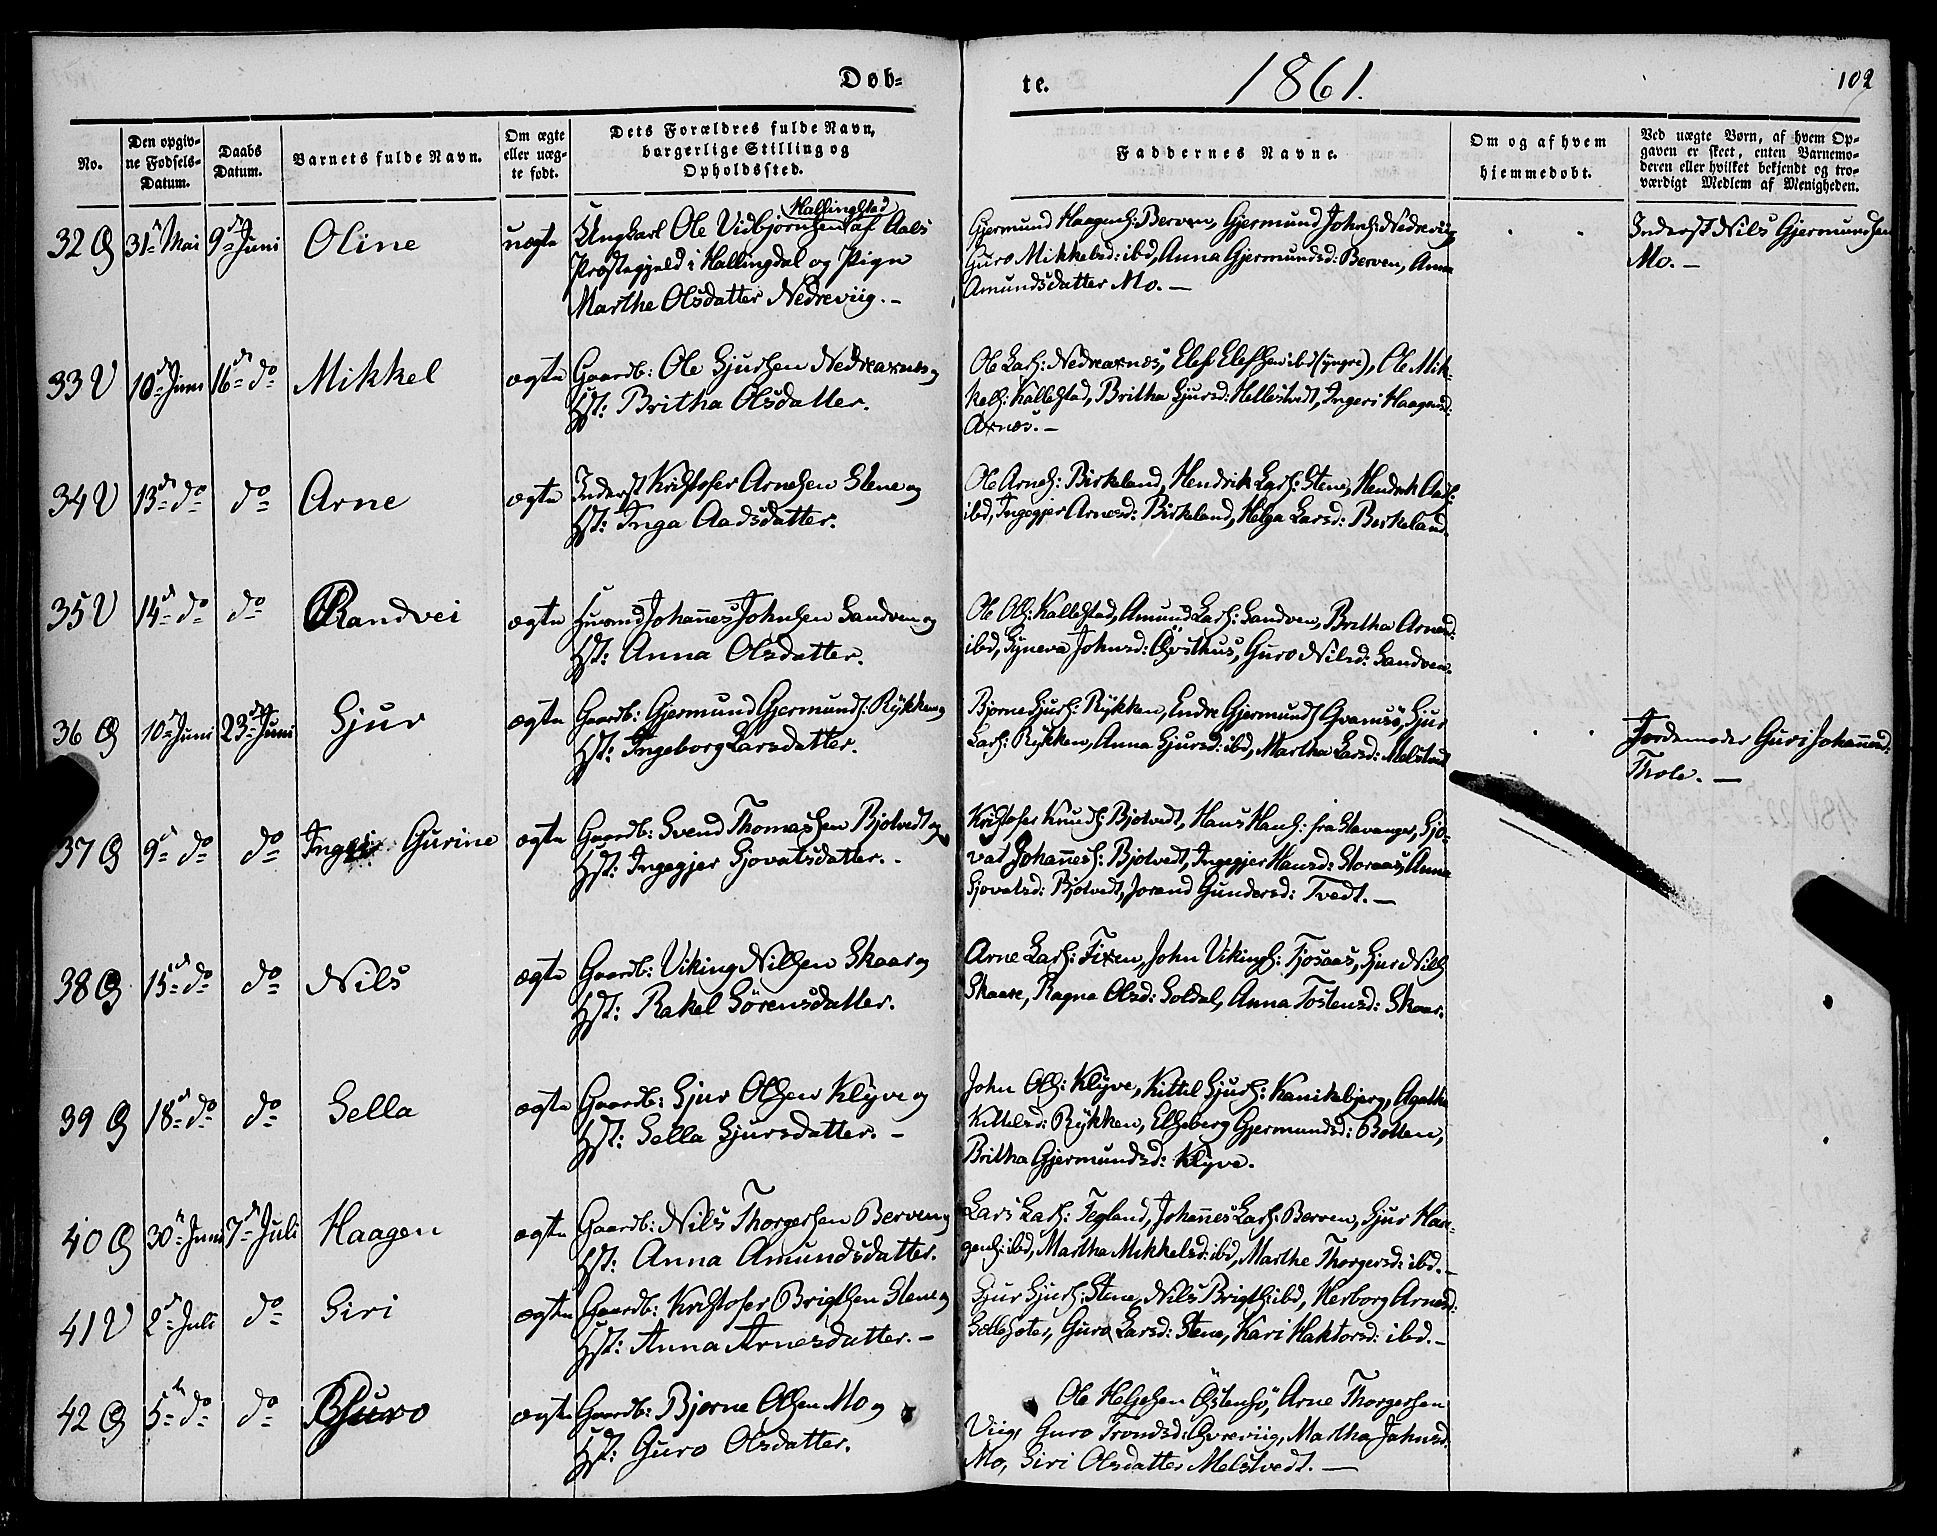 Døb-
te.
1861.
102
No.
Den opgiv-
ne Fødsels-
Datum.
Daabs
Datum.
Barnets fulde Navn.
Om ægte
eller uæg-
te født.
Dets Forældres fulde Navn,
borgerlige Stilling og
Opholdssted.
Faddernes Navne.
Om og af hvem
hjemmedøbt.
Ved uægte Børn, af hvem Op-
gaven er skeet, enten Barnemo-
deren eller hvilket bekjendt og tro-
værdigt Medlem af Menigheden.
32 Ø 31te Mai 9de Juni Oline uægte
Hallingstad
Ungkarl Ole Vidbjørnsen af Aals
Præstegjeld i Hallingdal og Pige
Marthe Olsdatter Nedreviig. -
Gjermund Haagens: Berven, Gjermund Johns: Nedreviig,
Guro Mikkelsd: ibd, Anna Gjermundsd: Berven, Anna
Amundsdatter Mo. -
Inderst Nils Gjermundsen
Mo. -
33 V 10de Juni 16de do Mikkel ægte
Gaardb: Ole Sjursen Nedreaxnes og
Hst: Britha Olsdatter.
Ole Lars: Nedreaxnæs, Elef Elefsen ibd (yngre), Ole Mik-
kels: Kallestad, Britha Sjursd: Hellestvedt, Ingeri Haagensd:
Axnæs. -
34 V 13de do do Arne ægte
Inderst Kristofer Arnesen Stene og
Hst: Inga Aadsdatter.
Ole Arnes: Birkeland, Hendrik Lars: Stene, Hendrik Aads:
ibd, Ingegjer Arnesd: Birkeland, Helga Larsd: Birkeland.
35 V 14de do do Randvei ægte
Huusmd Johannes Johnsen Sandven og
Hst: Anna Olsdatter.
Ole Ols: Kallestad, Amund Lars: Sandven, Britha Arnesd:
ibd, Syneva Johnsd: Øysthus, Guro Nilsd: Sandven.
36 Ø 10de Juni 23de Juni Sjur ægte
Gaardb: Gjermund Gjermunds: Rykken og
Hst: Ingeborg Larsdatter.
Bjørne Sjurs: Rykken, Endre Gjermunds Gvamsø, Sjur
Lars: Rykken, Anna Sjursd: ibd, Martha Larsd: Melstvedt
Jordemoder Guri Johannesd:
Thole. -
37 Ø 9de do do Gurine ægte
Gaardb: Svend Thomassen Bjotvedt og
Hst: Ingegjer Sjovatsdatter. -
Kristofer Knuds: Bjotvedt, Hans Hans: fra Stavanger, Sjo-
vat Johannes: Bjotvedt, Ingegjer Hansd: Storaas, Anna
Sjovatsd: Bjotvedt, Jorand Gundersd: Tvedt. -
38 Ø 15de do do Nils ægte
Gaardb: Viking Nilsen Skaar og
Hst: Rakel Sörensdatter.
Arne Lars: Fixen, John Vikings: Tjosaas, Sjur Nils
Skaare, Ragna Olsd: Soldal, Anna Tostensd: Skaar.
39 Ø 18de do do Sella ægte
Gaardb: Sjur Olsen Klyve og
Hst: Sella Sjursdatter. -
John Ols: Klyve, Kittil Sjurs: Kanikebjerg, Agatha
Kittelsd: Rykken, Elseberg Gjermundsd: Botten,
Britha Gjermundsd: Klyve.
40 Ø 30te Juni 7de Juli Haagen ægte
Gaardb: Nils Thorgersen Berven og
Hst: Anna Amundsdatter.
Lars Lars: Tegland, Johannes Lars: Berven, Sjur Haa-
gens: ibd, Martha Mikkelsd: ibd, Marthe Thorgersd: ibd. -
41 V 2de Juli do Siri ægte
Gaardb: Kristofer Brigtsen Stene og
Hst: Anna Arnesdatter. -
Sjur Sjurs: Stene, Nils Brigts: ibd, Herborg Arnesd:
Guro Larsd: Stene, Kari Haktorsd: ibd. -
42 Ø 5te do do Guro ægte
Gaardb: Bjørne Olsen Mo og
Hst: Guro Olsdatter.
Ole Helgesen Östensö, Arne Thorgersen
Viig, Guro Trondsd: Øvreviig, Martha Johnsd:
Mo, Siri Olsdatter Melstvedt. -